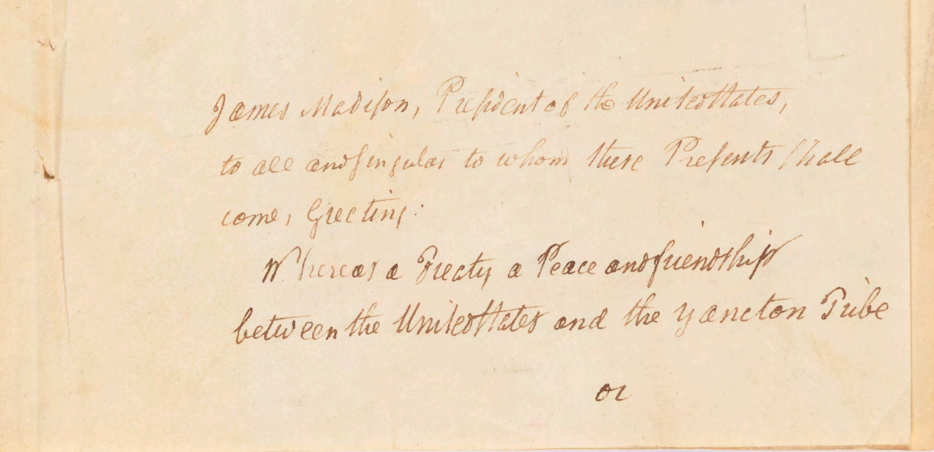 James Madison, President of the United States,
to all and singular to whom these Presents shall
come, Greeting:
Whereas a Treaty a Peace and friendship
between the United States and the Yancton Tribe
or